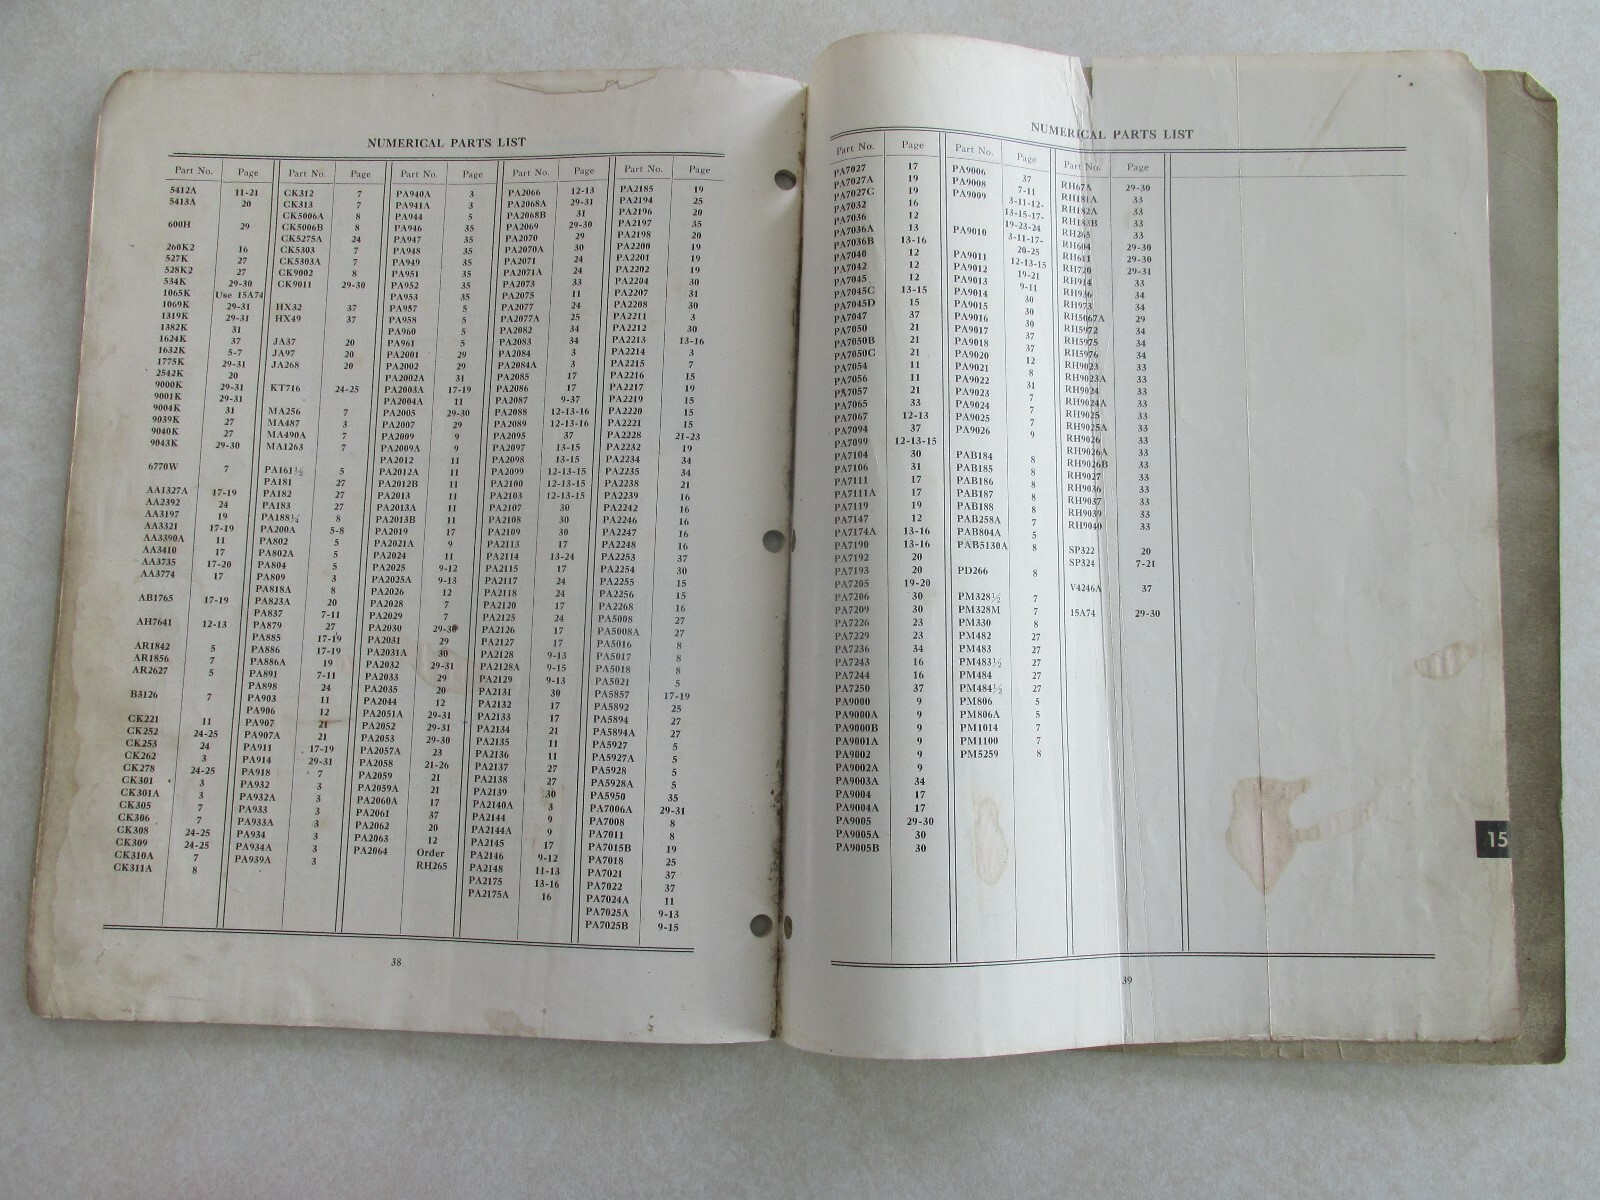 NUMERICAL PARTS LIST
Part No. Page Part No. Page Part No. Page Part No. Page Part No. Page
5412A 11-21
5413A 20
600H 29
260K2 16
527K 27
528K2 27
534K 29-30
1065K Use 15A74
1069K 29-31
1319K 29-31
1382K 31
1624K 37
1632K 5-7
1775K 29-31
2542K 20
9000K 29-31
9001K 29-31
9004K 31
9039K 27
9040K 27
9043K 29-30
6770W 7
AA1327A 17-19
AA2392 24
AA3197 19
AA3321 17-19
AA3390A 11
AA3410 17
AA3735 17-20
AA3774 17
AB1765 17-19
AH7641 12-13
AR1842 5
AR1856 7
AR2627 5
B3126 7
CK221 11
CK252 24-25
CK253 24
CK262 3
CK278 24-25
CK301 3
CK301A 3
CK305 7
CK306 7
CK308 24-25
CK309 24-25
CK310A 7
CK311A 8
CK312 7
CK313 7
CK5006A 8
CK5006B 8
CK5275A 24
CK5303 7
CK5303A 7
CK9002 8
CK9011 29-30
HX32 37
HX49 37
JA37 20
JA97 20
JA268 20
KT716 24-25
MA256 7
MA487 3
MA490A 7
MA1263 7
PA161½ 5
PA181 27
PA182 27
PA183 27
PA188¼ 8
PA200A 5-8
PA802 5
PA802A 5
PA804 5
PA809 3
PA818A 8
PA823A 20
PA837 7-11
PA879 27
PA885 17-19
PA886 17-19
PA886A 19
PA891 7-11
PA898 24
PA903 11
PA906 12
PA907 21
PA907A 21
PA911 17-19
PA914 29-31
PA918 7
PA932 3
PA932A 3
PA933 3
PA933A 3
PA934 3
PA934A 3
PA939A 3
PA940A 3
PA941A 3
PA944 5
PA946 35
PA947 35
PA948 35
PA949 35
PA951 35
PA952 35
PA953 35
PA957 5
PA958 5
PA960 5
PA961 5
PA2001 29
PA2002 29
PA2002A 31
PA2003A 17-19
PA2004A 11
PA2005 29-30
PA2007 29
PA2009 9
PA2009A 9
PA2012 11
PA2012A 11
PA2012B 11
PA2013 11
PA2013A 11
PA2013B 11
PA2019 17
PA2021A 9
PA2024 11
PA2025 9-12
PA2025A 9-13
PA2026 12
PA2028 7
PA2029 7
PA2030 29-30
PA2031 29
PA2031A 30
PA2032 29-31
PA2033 29
PA2035 20
PA2044 12
PA2051A 29-31
PA2052 29-31
PA2053 29-30
PA2057A 23
PA2058 21-26
PA2059 21
PA2059A 21
PA2060A 17
PA2061 37
PA2062 20
PA2063 12
PA2064 Order
RH265
PA2066 12-13
PA2068A 29-31
PA2068B 31
PA2069 29-30
PA2070 29
PA2070A 30
PA2071 24
PA2071A 24
PA2073 33
PA2075 11
PA2077 24
PA2077A 25
PA2082 34
PA2083 34
PA2084 3
PA2084A 3
PA2085 17
PA2086 17
PA2087 9-37
PA2088 12-13-16
PA2089 12-13-16
PA2095 37
PA2097 13-15
PA2098 13-15
PA2099 12-13-15
PA2100 12-13-15
PA2103 12-13-15
PA2107 30
PA2108 30
PA2109 30
PA2113 17
PA2114 13-24
PA2115 17
PA2117 24
PA2118 24
PA2120 17
PA2125 24
PA2126 17
PA2127 17
PA2128 9-13
PA2128A 9-15
PA2129 9-13
PA2131 30
PA2132 17
PA2133 17
PA2134 21
PA2135 11
PA2136 11
PA2137 27
PA2138 27
PA2139 30
PA2140A 3
PA2144 9
PA2144A 9
PA2145 17
PA2146 9-12
PA2148 11-13
PA2175 13-16
PA2175A 16
PA2185 19
PA2194 25
PA2196 20
PA2197 35
PA2198 20
PA2200 19
PA2201 19
PA2202 19
PA2204 30
PA2207 31
PA2208 30
PA2211 3
PA2212 30
PA2213 13-16
PA2214 3
PA2215 7
PA2216 15
PA2217 19
PA2219 15
PA2220 15
PA2221 15
PA2228 21-23
PA2232 19
PA2234 34
PA2235 34
PA2238 21
PA2239 16
PA2242 16
PA2246 16
PA2247 16
PA2248 16
PA2253 37
PA2254 30
PA2255 15
PA2256 15
PA2268 16
PA5008 27
PA5008A 27
PA5016 8
PA5017 8
PA5018 8
PA5021 5
PA5857 17-19
PA5892 25
PA5894 27
PA5894A 27
PA5927 5
PA5927A 5
PA5928 5
PA5928A 5
PA5950 35
PA7006A 29-31
PA7008 8
PA7011 8
PA7015B 19
PA7018 25
PA7021 37
PA7022 37
PA7024A 11
PA7025A 9-13
PA7025B 9-15
38
NUMERICAL PARTS LIST
Part No. Page Part No. Page Part No. Page
PA7027 17
PA7027A 19
PA7027C 19
PA7032 16
PA7036 12
PA7036A 13
PA7036B 13-16
PA7040 12
PA7042 12
PA7045 12
PA7045C 13-15
PA7045D 15
PA7047 37
PA7050 21
PA7050B 21
PA7050C 21
PA7054 11
PA7056 11
PA7057 21
PA7065 33
PA7067 12-13
PA7094 37
PA7099 12-13-15
PA7104 30
PA7106 31
PA7111 17
PA7111A 17
PA7119 19
PA7147 12
PA7174A 13-16
PA7190 13-16
PA7192 20
PA7193 20
PA7205 19-20
PA7206 30
PA7209 30
PA7226 23
PA7229 23
PA7236 34
PA7243 16
PA7244 16
PA7250 37
PA9000 9
PA9000A 9
PA9000B 9
PA9001A 9
PA9002 9
PA9002A 9
PA9003A 34
PA9004 17
PA9004A 17
PA9005 29-30
PA9005A 30
PA9005B 30
PA9006 37
PA9008 7-11
PA9009 3-11-12-
13-15-17-
19-23-24
PA9010 3-11-17-
20-25
PA9011 12-13-15
PA9012 19-21
PA9013 9-11
PA9014 30
PA9015 30
PA9016 30
PA9017 37
PA9018 37
PA9020 12
PA9021 8
PA9022 31
PA9023 7
PA9024 7
PA9025 7
PA9026 9
PAB184 8
PAB185 8
PAB186 8
PAB187 8
PAB188 8
PAB258A 7
PAB804A 5
PAB5130A 8
PD266 8
PM328½ 7
PM328M 7
PM330 8
PM482 27
PM483 27
PM483½ 27
PM484 27
PM484½ 27
PM806 5
PM806A 5
PM1014 7
PM1100 7
PM5259 8
RH67A 29-30
RH181A 33
RH182A 33
RH183B 33
RH265 33
RH604 29-30
RH611 29-30
RH720 29-31
RH914 33
RH936 34
RH973 34
RH5067A 29
RH5972 34
RH5975 34
RH5976 34
RH9023 33
RH9023A 33
RH9024 33
RH9024A 33
RH9025 33
RH9025A 33
RH9026 33
RH9026A 33
RH9026B 33
RH9027 33
RH9036 33
RH9037 33
RH9039 33
RH9040 33
SP322 20
SP324 7-21
V4246A 37
15A74 29-30
39
15